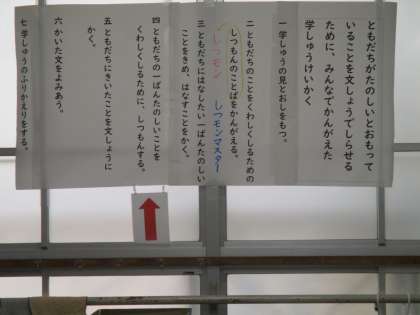 ともだちがたのしいとおもって
いることを文しょうでしらせる
ために、みんなでかんがえた
学しゅうけいかく
一 学しゅうの見とおしをもつ。
二 ともだちのことをくわしくしるための
しつもんのことばをかんがえる。
しつモン しつモンマスター
三 ともだちにはなしたい一ばんたのしい
ことをきめ、はなすことをかく。
四 ともだちの一ばんたのしいことを
くわしくしるために、しつもんする。
五 ともだちにきいたことを文しょうに
かく。
六 かいた文をよみあう。
七 学しゅうのふりかえりをする。